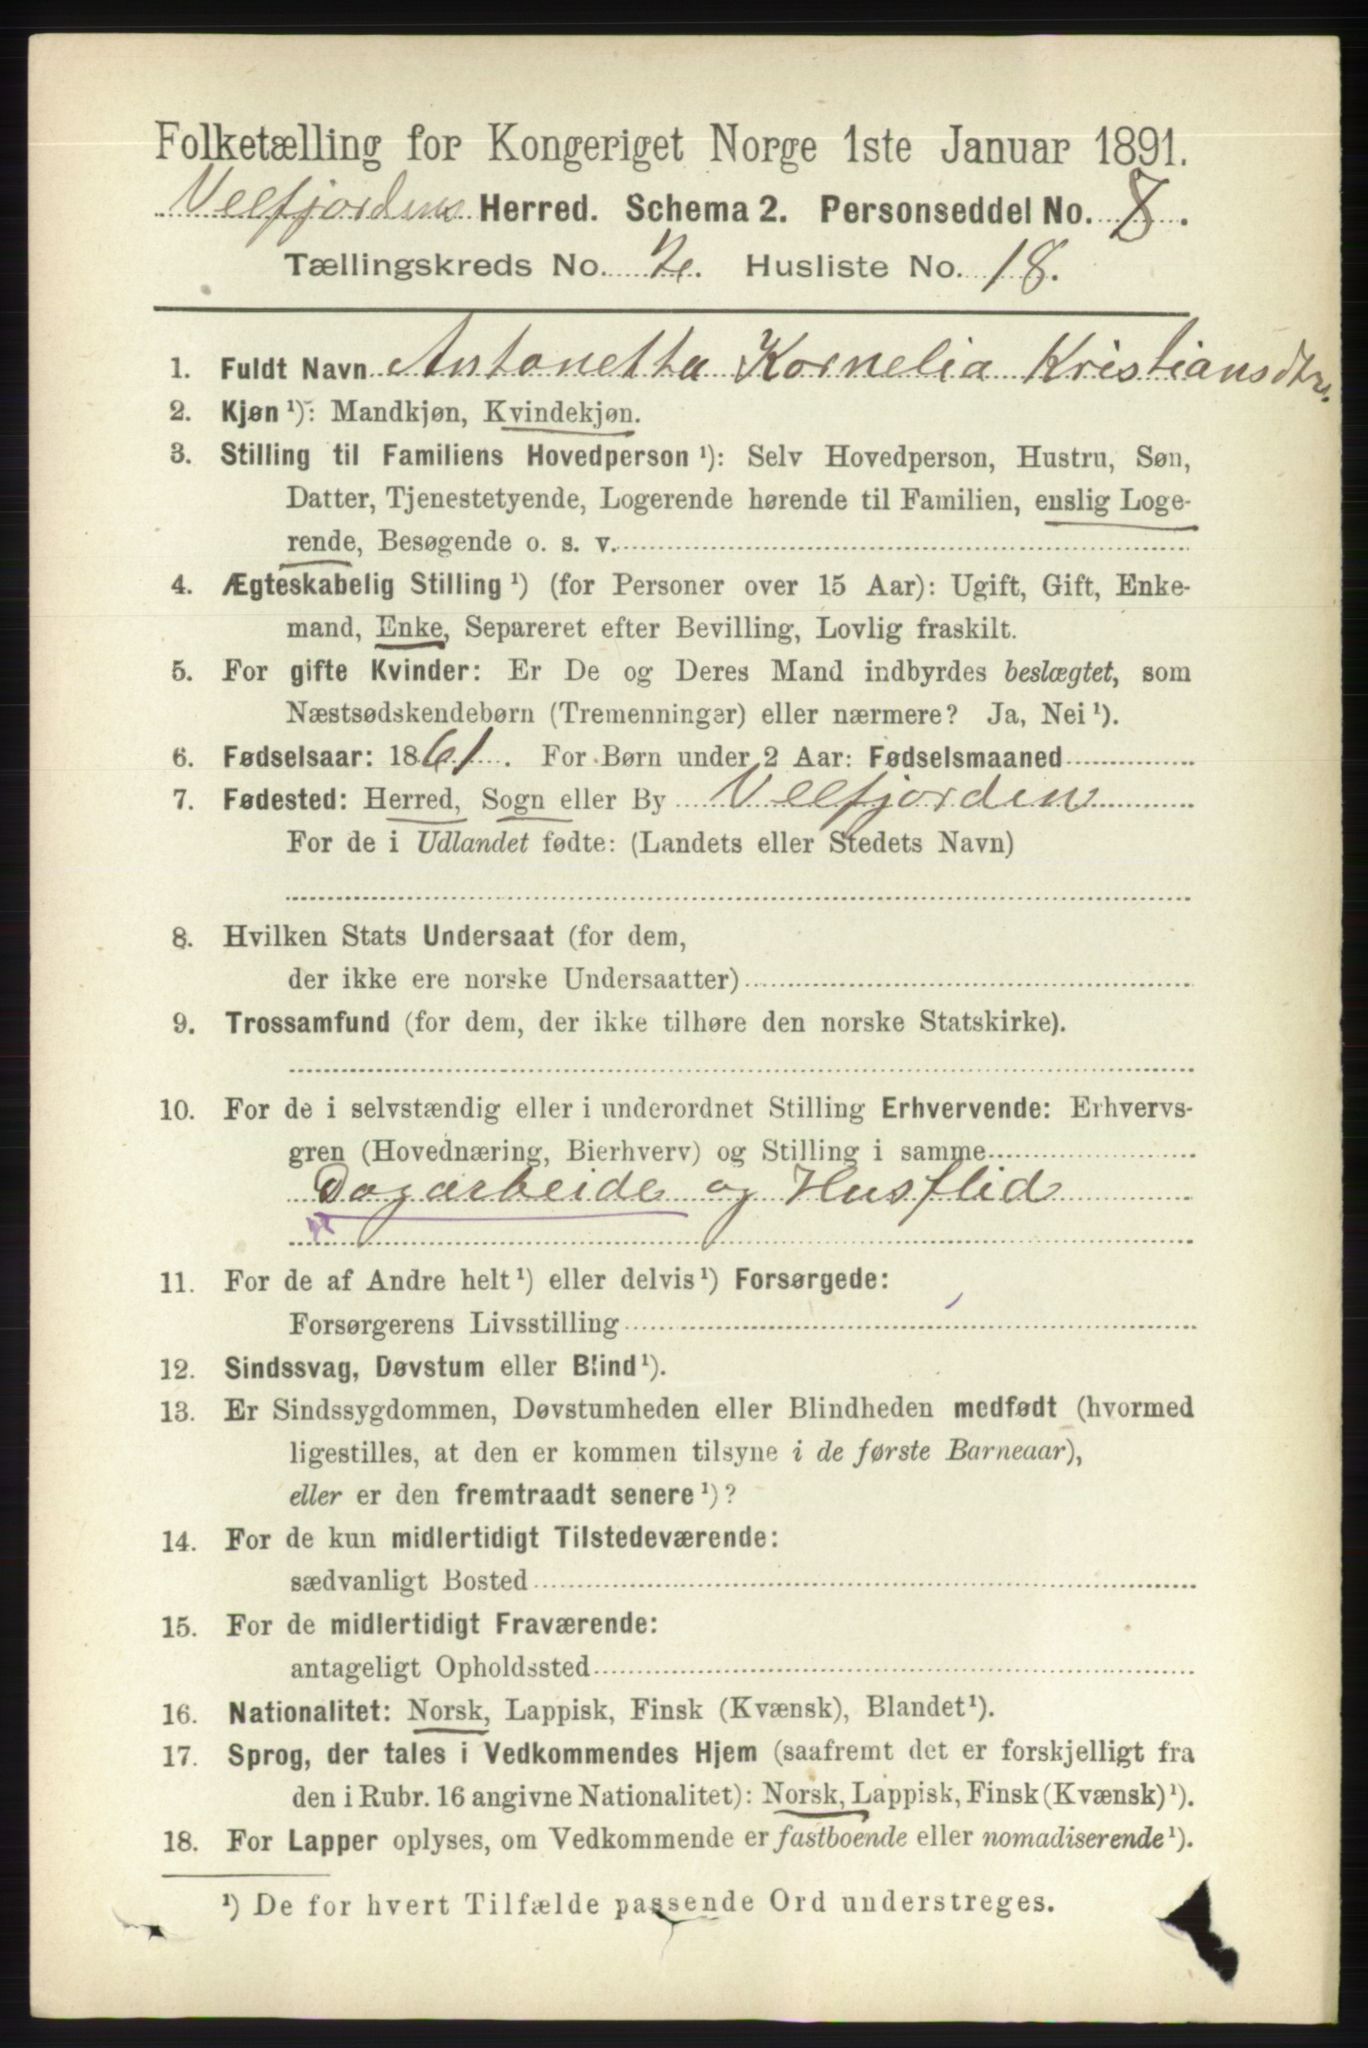 Folketælling for Kongeriget Norge 1ste Januar 1891.
Velfjordens Herred. Schema 2. Personseddel No. 8.
Tællingskreds No. 2. Husliste No. 18.
1. Fuldt Navn Antonetta Kornelia Kristiansdtr.
2. Kjøn¹): Mandkjøn, Kvindekjøn.
3. Stilling til Familiens Hovedperson¹): Selv Hovedperson, Hustru, Søn,
Datter, Tjenestetyende, Logerende hørende til Familien, enslig Loge-
rende, Besøgende o. s. v.
4. Ægteskabelig Stilling¹) (for Personer over 15 Aar): Ugift, Gift, Enke-
mand, Enke, Separeret efter Bevilling, Lovlig fraskilt.
5. For gifte Kvinder: Er De og Deres Mand indbyrdes beslægtet, som
Næstsødskendebørn (Tremenninger) eller nærmere? Ja, Nei¹).
6. Fødselsaar: 1861. For Børn under 2 Aar: Fødselsmaaned
7. Fødested: Herred, Sogn eller By Velfjorden
For de i Udlandet fødte: (Landets eller Stedets Navn)
8. Hvilken Stats Undersaat (for dem,
der ikke ere norske Undersaatter)
9. Trossamfund (for dem, der ikke tilhøre den norske Statskirke).
10. For de i selvstændig eller i underordnet Stilling Erhvervende: Erhvervs-
gren (Hovednæring, Bierhverv) og Stilling i samme
Dagarbeide og Husflid
11. For de af Andre helt¹) eller delvis¹) Forsørgede:
Forsørgerens Livsstilling
12. Sindssvag, Døvstum eller Blind¹).
13. Er Sindssygdommen, Døvstumheden eller Blindheden medfødt (hvormed
ligestilles, at den er kommen tilsyne i de første Barneaar),
eller er den fremtraadt senere¹)?
14. For de kun midlertidigt Tilstedeværende:
sædvanligt Bosted
15. For de midlertidigt Fraværende:
antageligt Opholdssted
16. Nationalitet: Norsk, Lappisk, Finsk (Kvænsk), Blandet¹).
17. Sprog, der tales i Vedkommendes Hjem (saafremt det er forskjelligt fra
den i Rubr. 16 angivne Nationalitet): Norsk, Lappisk, Finsk (Kvænsk)¹).
18. For Lapper oplyses, om Vedkommende er fastboende eller nomadiserende¹).
¹) De for hvert Tilfælde passende Ord understreges.